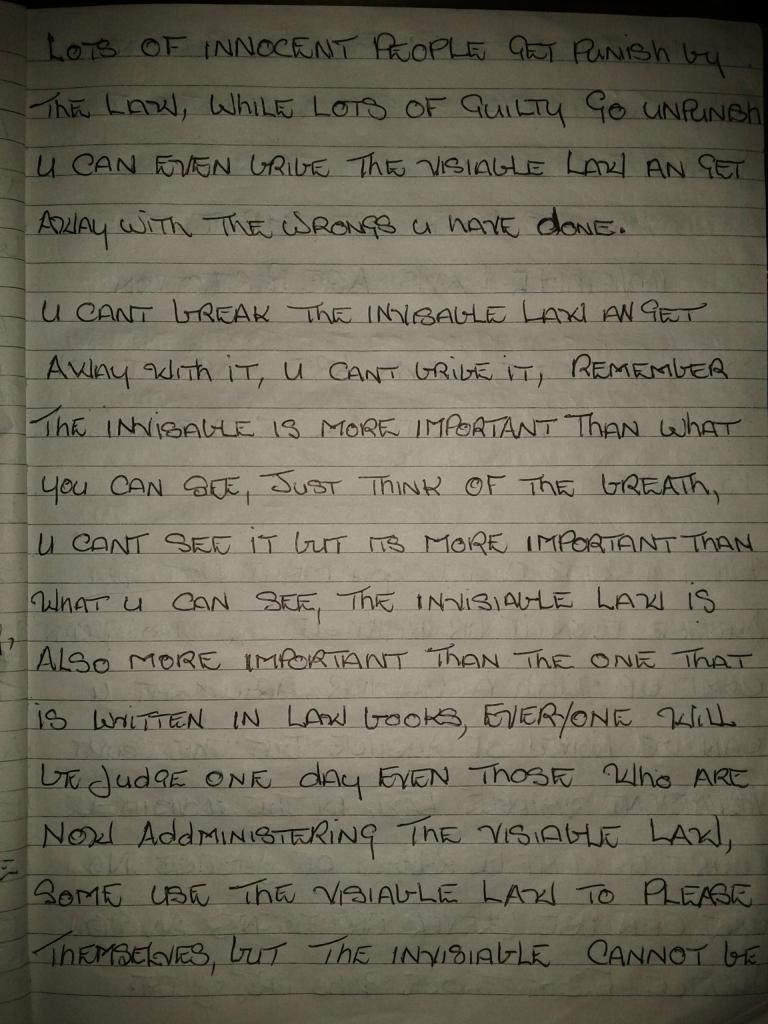 LOTS OF INNOCENT PEOPLE GET PUNISH by
THE LAW, WHILE LOTS OF GUILTY GO UNPUNISH
U CAN EVEN BRIBE THE VISIABLE LAW AN GET
AWAY WITH THE WRONGS U HAVE dONE.
U CANT BREAK THE INVISABLE LAW AN GET
AWAY WITH IT, U CANT BRIBE IT, REMEMBER
THE INVISABLE IS MORE IMPORTANT THAN WHAT
YOU CAN SEE, JUST THINK OF THE BREATH,
U CANT SEE IT BUT ITS MORE IMPORTANT THAN
WHAT U CAN SEE, THE INVISIABLE LAW IS
ALSO MORE IMPORTANT THAN THE ONE THAT
IS WRITTEN IN LAW BOOKS, EVERYONE WILL
BE JUdGE ONE dAY EVEN THOSE WHO ARE
NOW AddMINISTERING THE VISIABLE LAW,
SOME USE THE VISIABLE LAW TO PLEASE
THEMSELVES, BUT THE INVISIABLE CANNOT BE